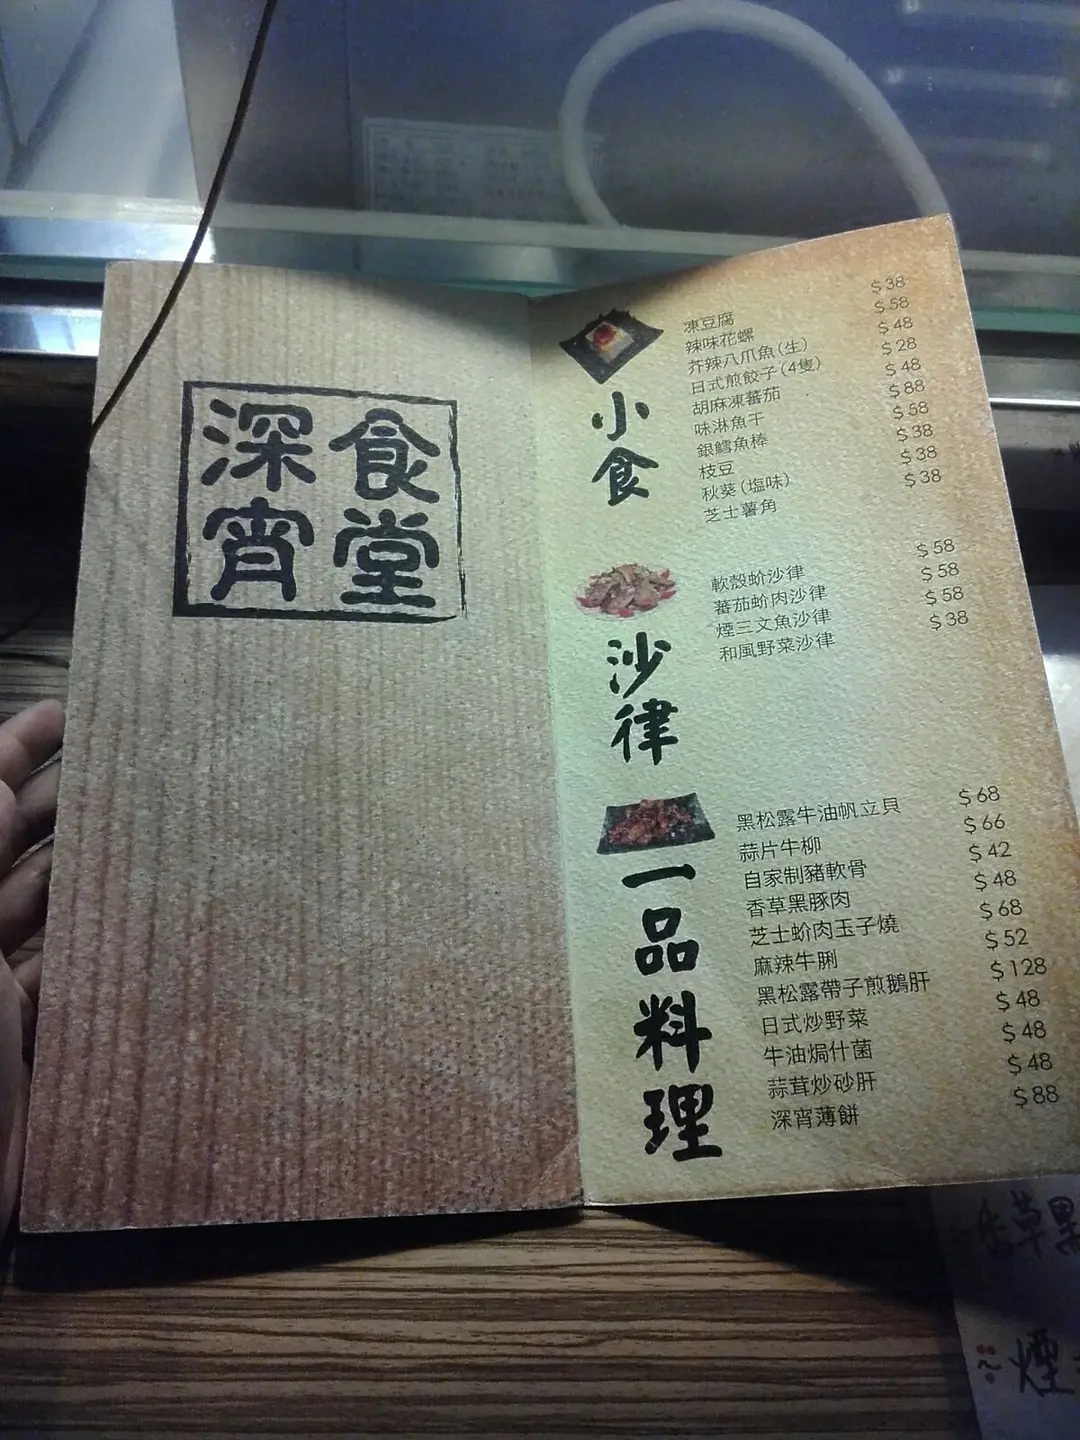 深宵
食堂
小食
凍豆腐 $38
辣味花螺 $58
芥辣八爪魚(生) $48
日式煎餃子(4隻) $28
胡麻凍蕃茄 $48
味淋魚干 $88
銀鱈魚棒 $58
枝豆 $38
秋葵(塩味) $38
芝士薯角 $38
沙律
軟殼蚧沙律 $58
蕃茄蚧肉沙律 $58
煙三文魚沙律 $58
和風野菜沙律 $38
一品料理
黑松露牛油帆立貝 $68
蒜片牛柳 $66
自家制豬軟骨 $42
香草黑豚肉 $48
芝士蚧肉玉子燒 $68
麻辣牛脷 $52
黑松露帶子煎鵝肝 $128
日式炒野菜 $48
牛油焗什菌 $48
蒜茸炒砂肝 $48
深宵薄餅 $88
香草黑
煙